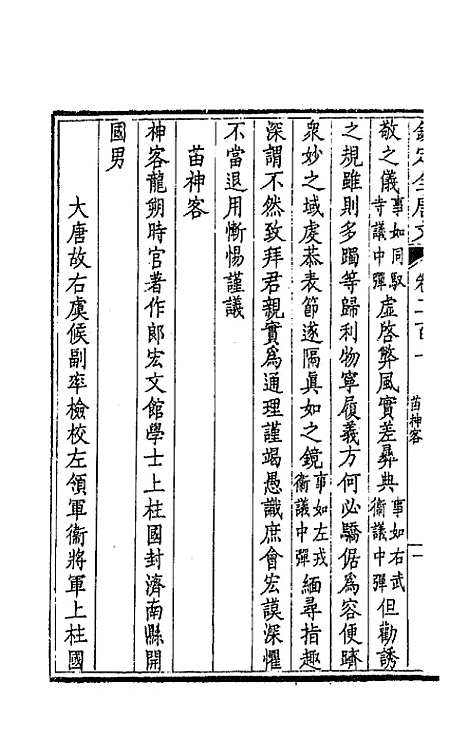 欽定全唐文 卷二百一 苗神客 一
敬之儀事如同馭寺議中彈虛啓弊風實差彝典事如右武衞議中彈但勸誘
之規雖則多躅等歸利物寧履義方何必驕倨爲容便躋
衆妙之域虔恭表節遂隔眞如之鏡事如左戎衞議中彈緬尋指趣
深謂不然致拜君親實爲通理謹竭愚識庶會宏謨深懼
不當退用慚惕謹議
苗神客
神客龍朔時官著作郎宏文館學士上柱國封濟南縣開
國男
大唐故右虞候副率檢校左領軍衞將軍上柱國